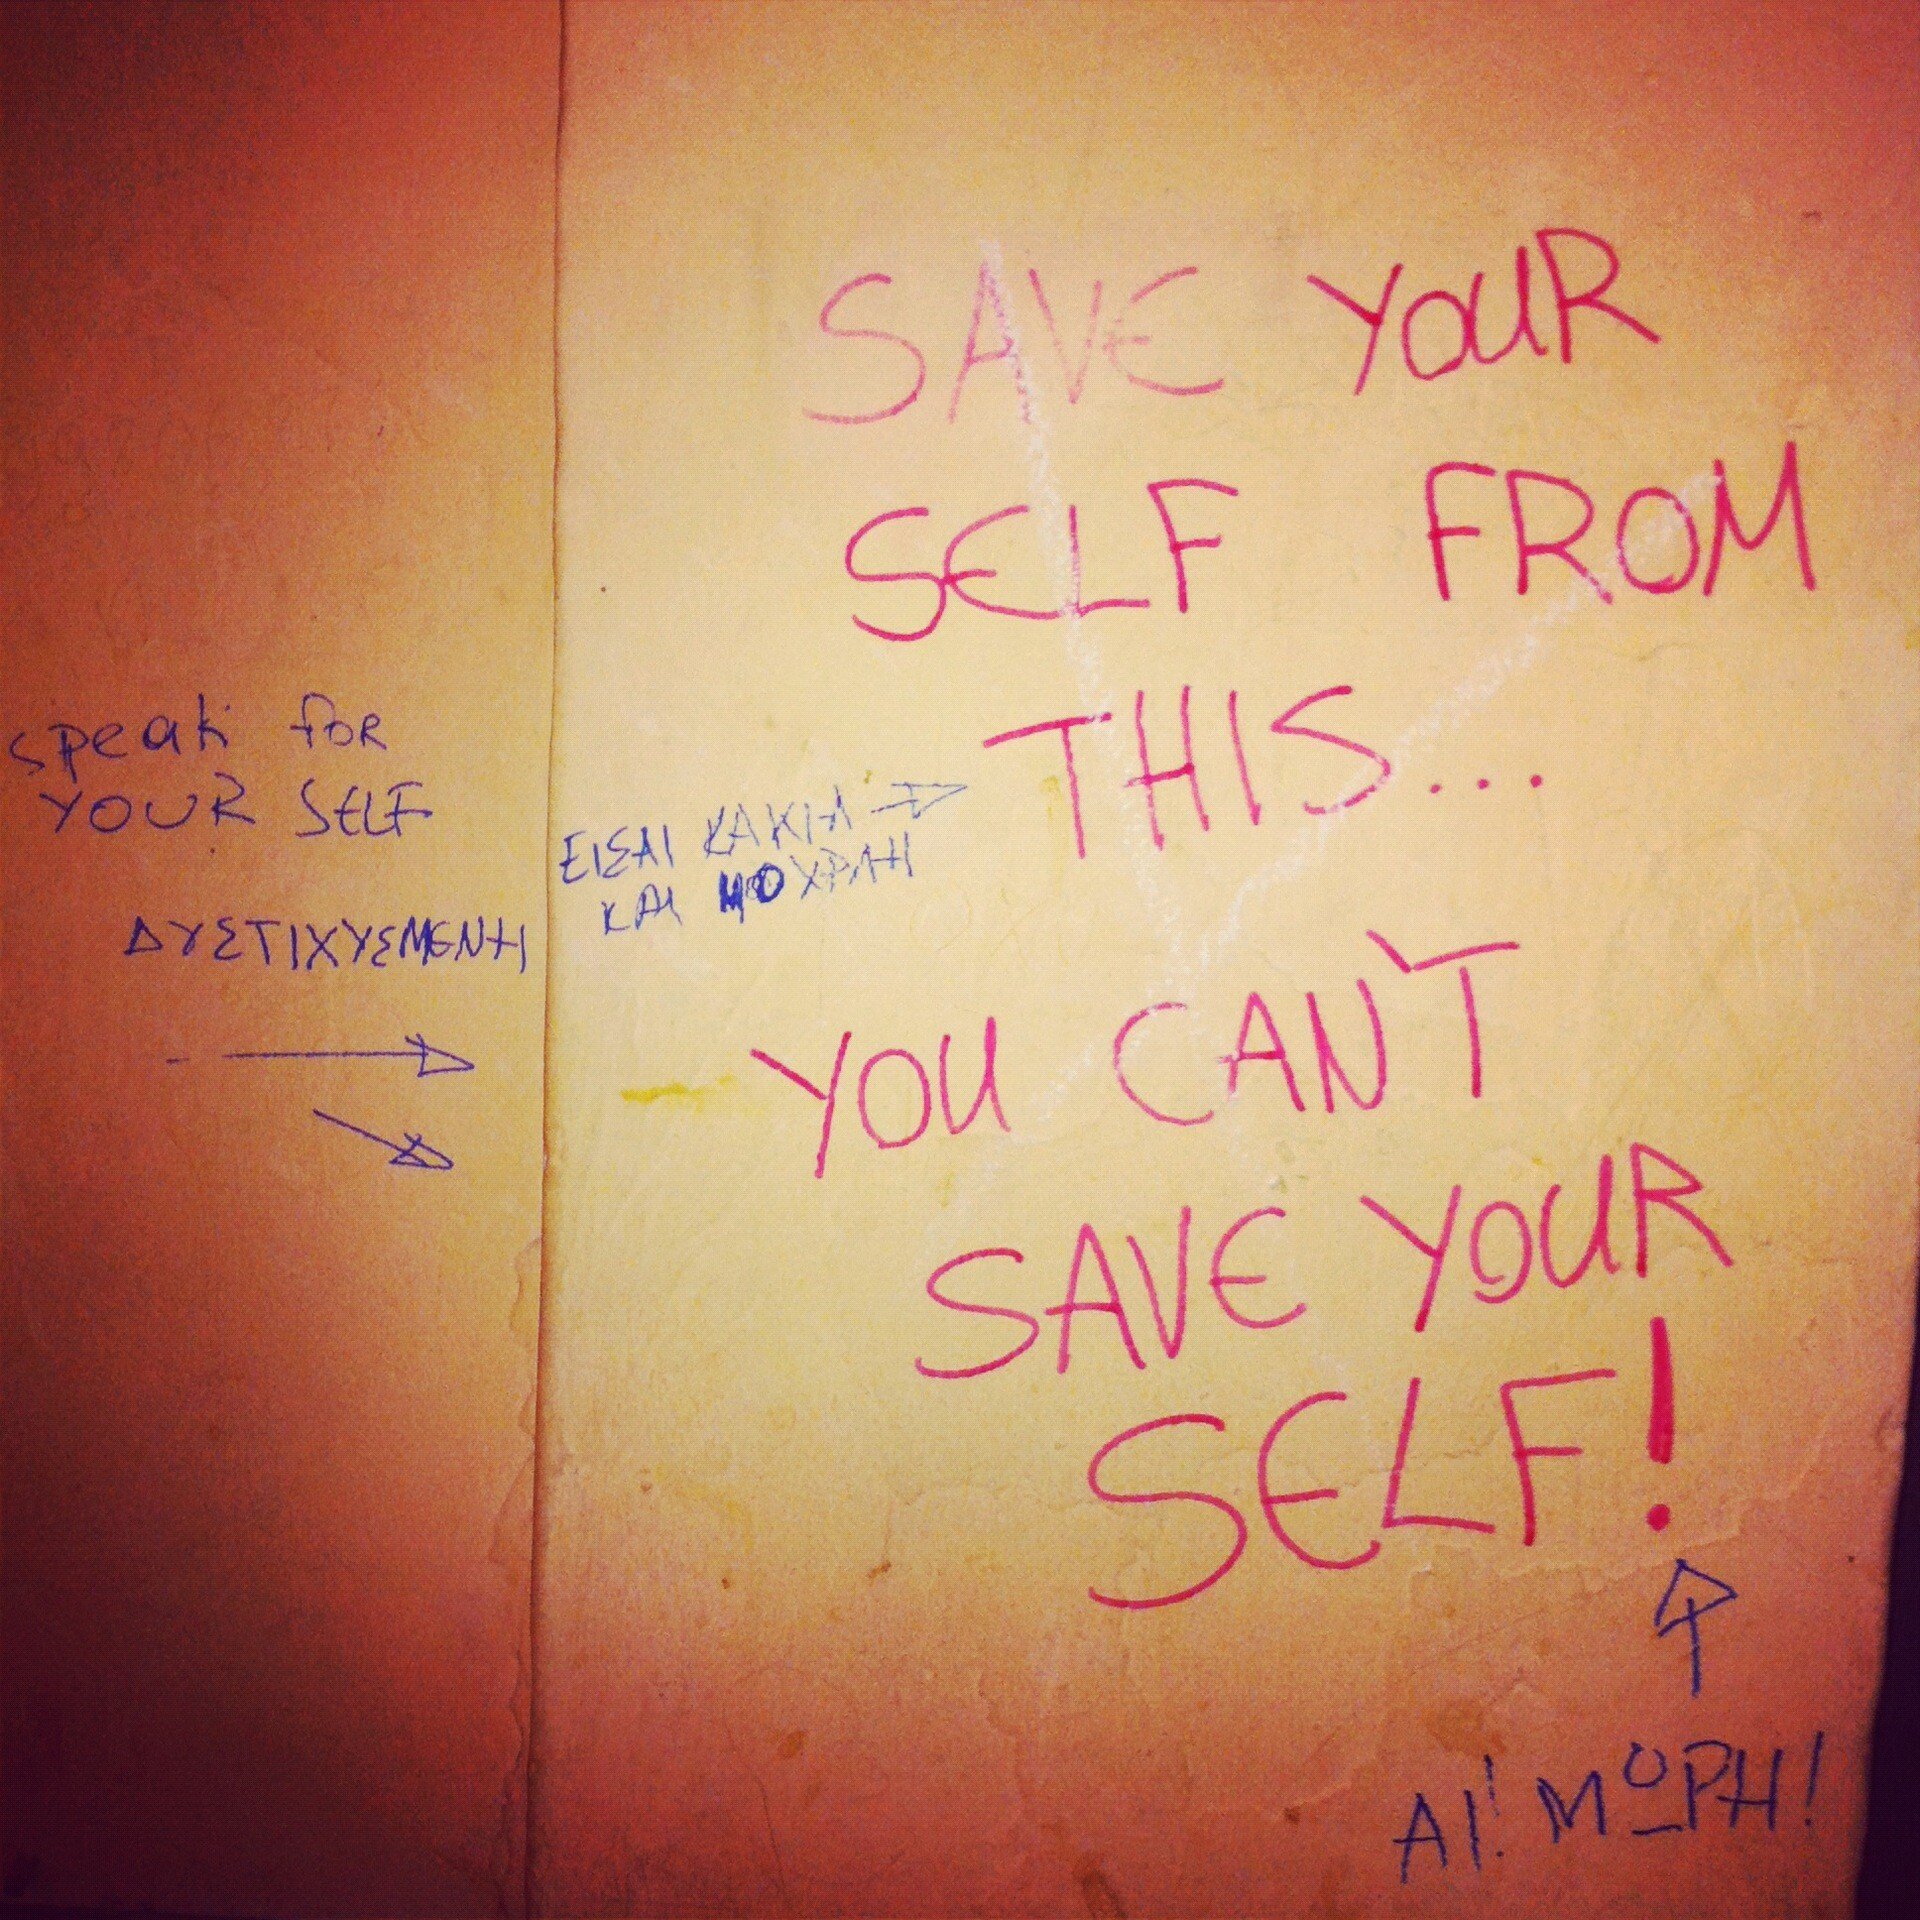 SAVE YOUR
SELF FROM
THIS...
YOU CAN'T
SAVE YOUR
SELF!
speak for
YOUR SELF
ΔΥΣΤΙΧΥΣΜΕΝΗ
ΕΙΣΑΙ ΚΑΚΙΑ
ΚΑΙ
ΑΙ! ΜΩΡΗ!